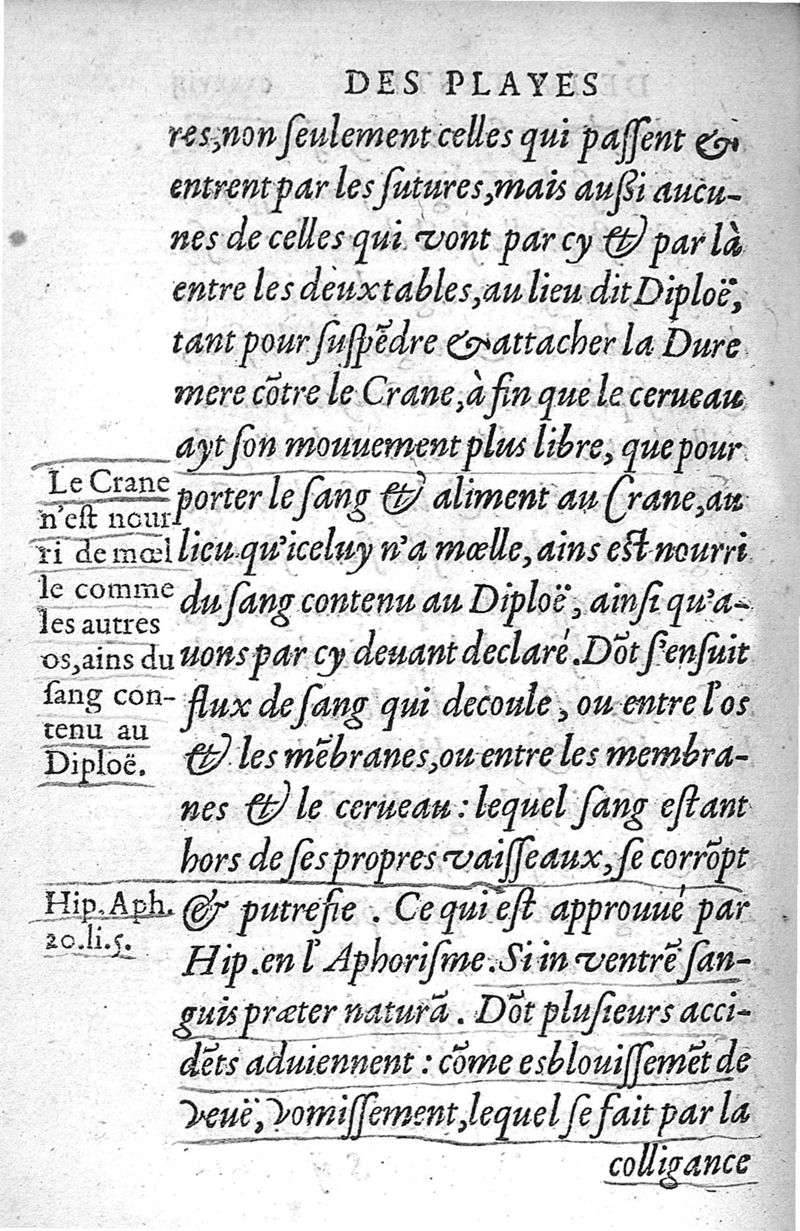 DES PLAYES
res, non ſeulement celles qui paſſent &
entrent par les ſutures, mais auſſi aucu-
nes de celles qui vont par cy & par là
entre les deux tables, au lieu dit Diploë,
tant pour ſuſpẽdre & attacher la Dure
mere cõtre le Crane, à fin que le cerueau
ayt ſon mouuement plus libre, que pour
porter le ſang & aliment au Crane, au
lieu qu'iceluy n'a mœlle, ains eſt nourri
du ſang contenu au Diploë, ainſi qu'a-
uons par cy deuant declaré. Dõt s'enſuit
flux de ſang qui decoule, ou entre l'os
& les mẽbranes, ou entre les membra-
nes & le cerueau : lequel ſang eſtant
hors de ſes propres vaiſſeaux, ſe corrõpt
& putrefie . Ce qui eſt approuué par
Hip. en l'Aphoriſme. Si in ventrẽ ſan-
guis præter naturã . Dõt pluſieurs acci-
dẽts aduiennent : cõme esblouiſſemẽt de
veuë, vomiſſement, lequel ſe fait par la
colligance
Le Crane
n'eſt nour
ri de mœl
le comme
les autres
os, ains du
ſang con-
tenu au
Diploë.
Hip. Aph.
20. li. 5.